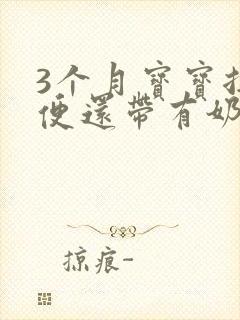 3个月寶寶拉
便還帶有奶
掠痕-